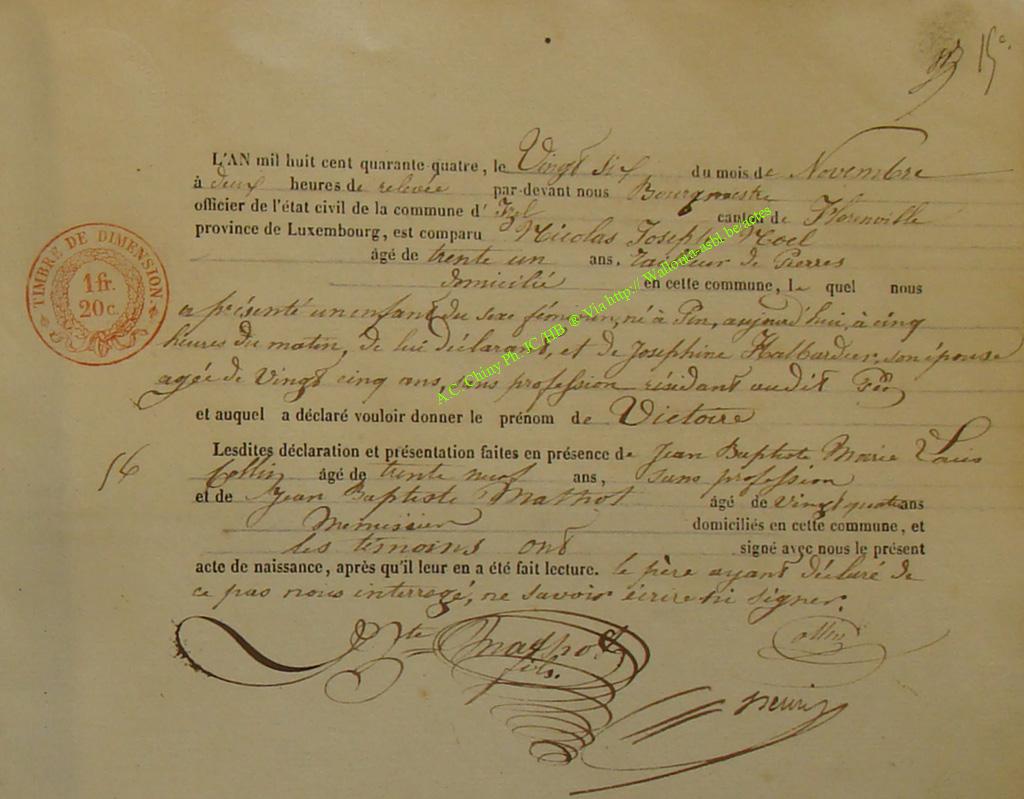 15
L'AN mil huit cent quarante-quatre, le Vingt Six du mois de Novembre
à deux heures de relevée par-devant nous Bourgmestre
officier de l'état civil de la commune d' Izel canton de Florenville
province de Luxembourg, est comparu Nicolas Joseph Noel
âgé de trente un ans, Tailleur de Pierres
domicilié en cette commune, le quel nous
a présenté un enfant du sexe féminin, né à Pin, aujourd'hui, à cinq
heures du matin, de lui déclarant, et de Josephine Halbardier, son épouse
agée de Vingt cinq ans, sans profession résidant audit Pin
et auquel a déclaré vouloir donner le prénom de Victoire
Lesdites déclaration et présentation faites en présence de Jean Baptiste Marie Louis
56
Collin âgé de trente neuf ans, sans profession
et de Jean Baptiste Mathot âgé de vingt quatre ans
Menuisier domiciliés en cette commune, et
les témoins ont signé avec nous le présent
acte de naissance, après qu'il leur en a été fait lecture. le père ayant déclaré de
ce pas nous interrogé, ne savoir écrire ni signer.
Bte Mathot
fils.
Collin
TIMBRE DE DIMENSION.
1 fr.
20 c.
A.C. Chiny Ph. JC/HB ® Via http://Wallonia-asbl.be/actes